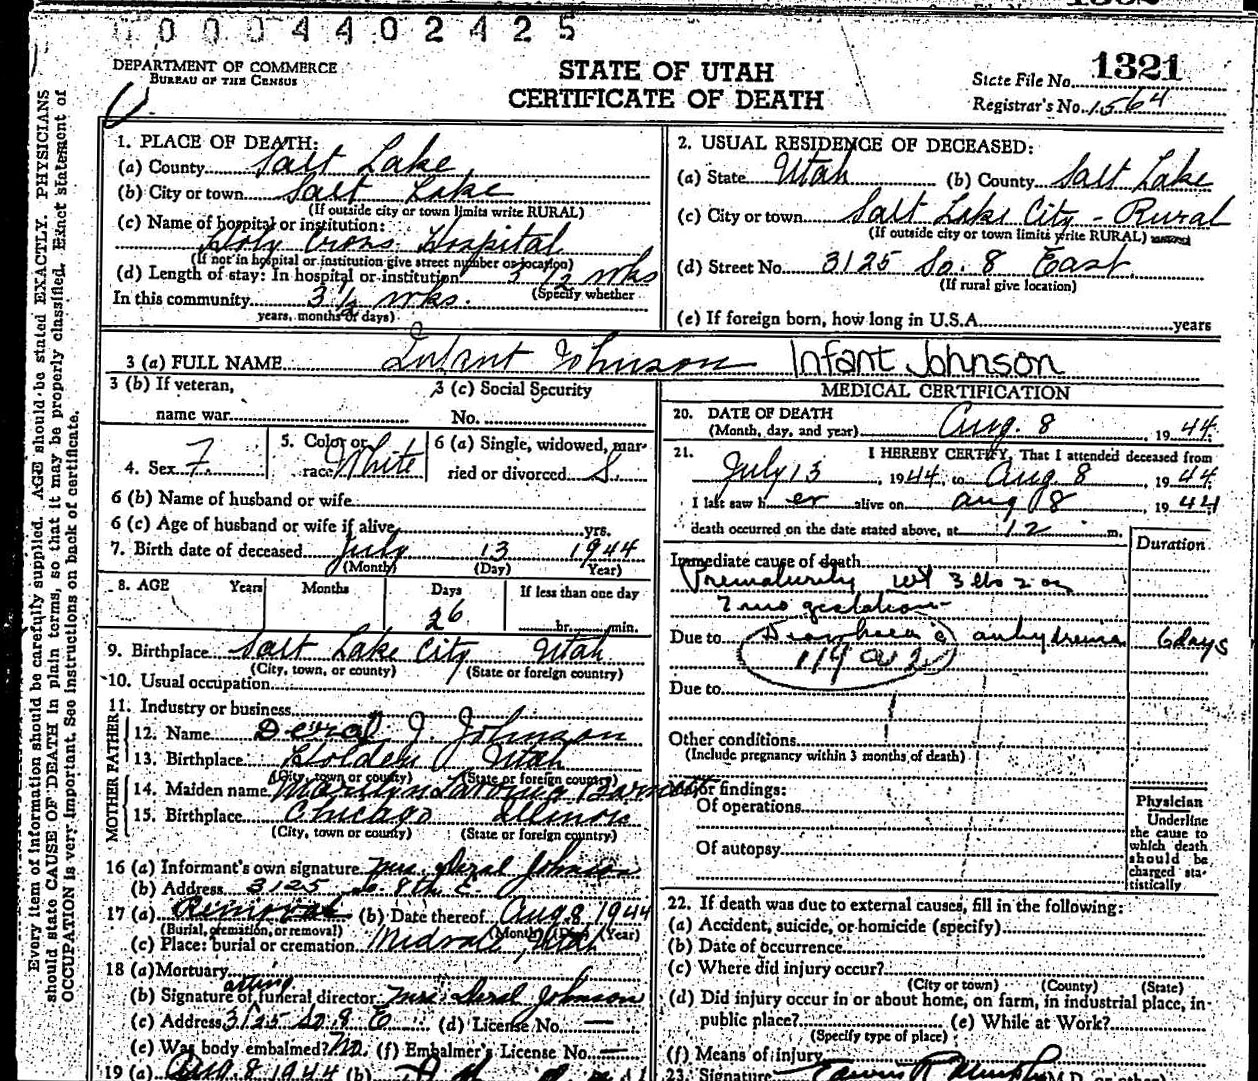 0 0 0 4 4 0 2 4 2 5
DEPARTMENT OF COMMERCE
BUREAU OF THE CENSUS
STATE OF UTAH
CERTIFICATE OF DEATH
State File No. 1321
Registrar's No. 1564
Every item of information should be carefully supplied. AGE should be stated EXACTLY. PHYSICIANS
should state CAUSE OF DEATH in plain terms, so that it may be properly classified. Exact statement of
OCCUPATION is very important. See instructions on back of certificate.
1. PLACE OF DEATH:
(a) County Salt Lake
(b) City or town Salt Lake
(If outside city or town limits write RURAL)
(c) Name of hospital or institution:
Holy Cross Hospital
(If not in hospital or institution give street number or location)
(d) Length of stay: In hospital or institution 3 1/2 wks
(Specify whether
In this community 3 1/2 wks.
years, months or days)
2. USUAL RESIDENCE OF DECEASED:
(a) State Utah (b) County Salt Lake
(c) City or town Salt Lake City - Rural
(If outside city or town limits write RURAL)
(d) Street No. 3125 So. 8 East
(If rural give location)
(e) If foreign born, how long in U.S.A. years
3 (a) FULL NAME Infant Johnson Infant Johnson
3 (b) If veteran, name war
3 (c) Social Security No.
4. Sex F
5. Color or race White
6 (a) Single, widowed, married or divorced S.
6 (b) Name of husband or wife
6 (c) Age of husband or wife if alive yrs.
7. Birth date of deceased July 13 1944
(Month) (Day) Year)
8. AGE Years Months Days If less than one day
26 hr. min.
9. Birthplace Salt Lake City Utah
(City, town, or county) (State or foreign country)
10. Usual occupation
11. Industry or business
FATHER
12. Name J Johnson
13. Birthplace Holden Utah
(City, town or county) (State or foreign country)
MOTHER
14. Maiden name Marilyn
15. Birthplace Chicago Illinois
(City, town or county) (State or foreign country)
16 (a) Informant's own signature Mrs. Deral Johnson
(b) Address 3125 So 8th E.
17 (a) Removal (b) Date thereof Aug 8 1944
(Burial, cremation, or removal) (Month) (Day) (Year)
(c) Place: burial or cremation Midvale, Utah
18 (a) Mortuary
acting
(b) Signature of funeral director Mrs. Deral Johnson
(c) Address 3125 So. 8 E (d) License No. —
(e) Was body embalmed? No. (f) Embalmer's License No. —
19 (a) Aug. 8 1944 (b)
MEDICAL CERTIFICATION
20. DATE OF DEATH
(Month, day, and year) Aug. 8, 1944
21. I HEREBY CERTIFY, That I attended deceased from
July 13, 1944, to Aug. 8, 1944.
I last saw h er alive on Aug 8, 1944
death occurred on the date stated above, at 12 m.
Duration
Immediate cause of death
Prematurity wt 3 lbs 2 oz
7 mo gestation
Due to Diarrhea c anhydremia 6 days
119 a 2
Due to
Other conditions
(Include pregnancy within 3 months of death)
Major findings:
Of operations
Of autopsy
Physician
Underline
the cause to
which death
should be
charged sta-
tistically
22. If death was due to external causes, fill in the following:
(a) Accident, suicide, or homicide (specify)
(b) Date of occurrence
(c) Where did injury occur?
(City or town) (County) (State)
(d) Did injury occur in or about home, on farm, in industrial place, in
public place? (e) While at Work?
(Specify type of place)
(f) Means of injury
23. Signature Murphy M.D.